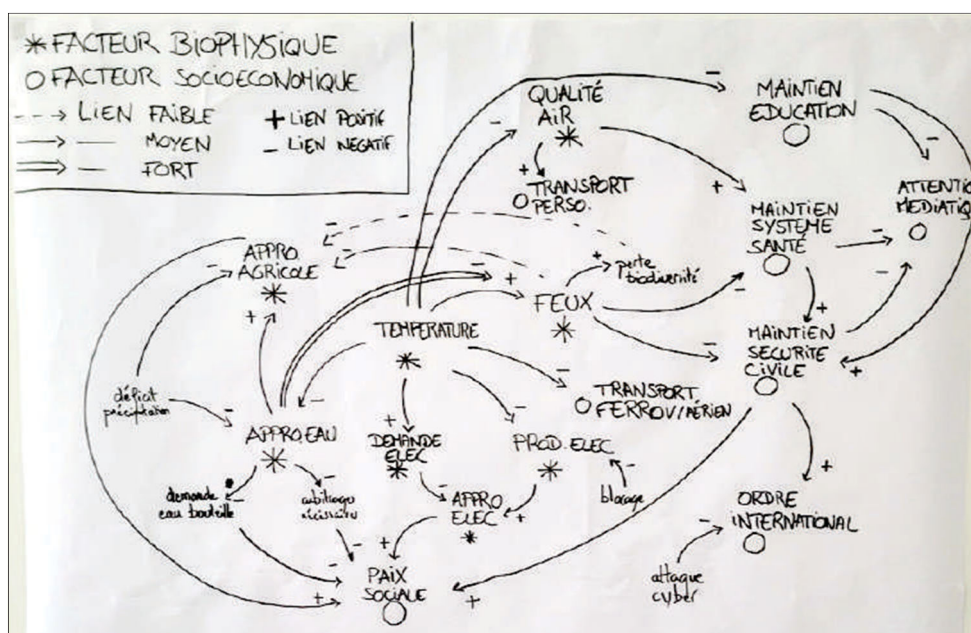 * FACTEUR BIOPHYSIQUE
O FACTEUR SOCIOECONOMIQUE
---> LIEN FAIBLE
+ LIEN POSITIF
→ — MOYEN
- LIEN NÉGATIF
⇒ — FORT
QUALITÉ
AIR
MAINTIEN
EDUCATION
TRANSPORT
PERSO.
ATTENTIO
MEDIATIQU
MAINTIEN
SYSTEME
SANTÉ
APPRO.
AGRICOLE
perte
biodiversité
FEUX
TEMPERATURE
MAINTIEN
SECURITE
CIVILE
TRANSPORT.
FERROV/AÉRIEN
déficit
précipitation
APPRO.EAU
DEMANDE
ELEC
PROD. ELEC
demande
eau bouteille
arbitrage
nécessaire
APPRO
ELEC
blocage
ORDRE
INTERNATIONAL
PAIX
SOCIALE
attaque
cyber